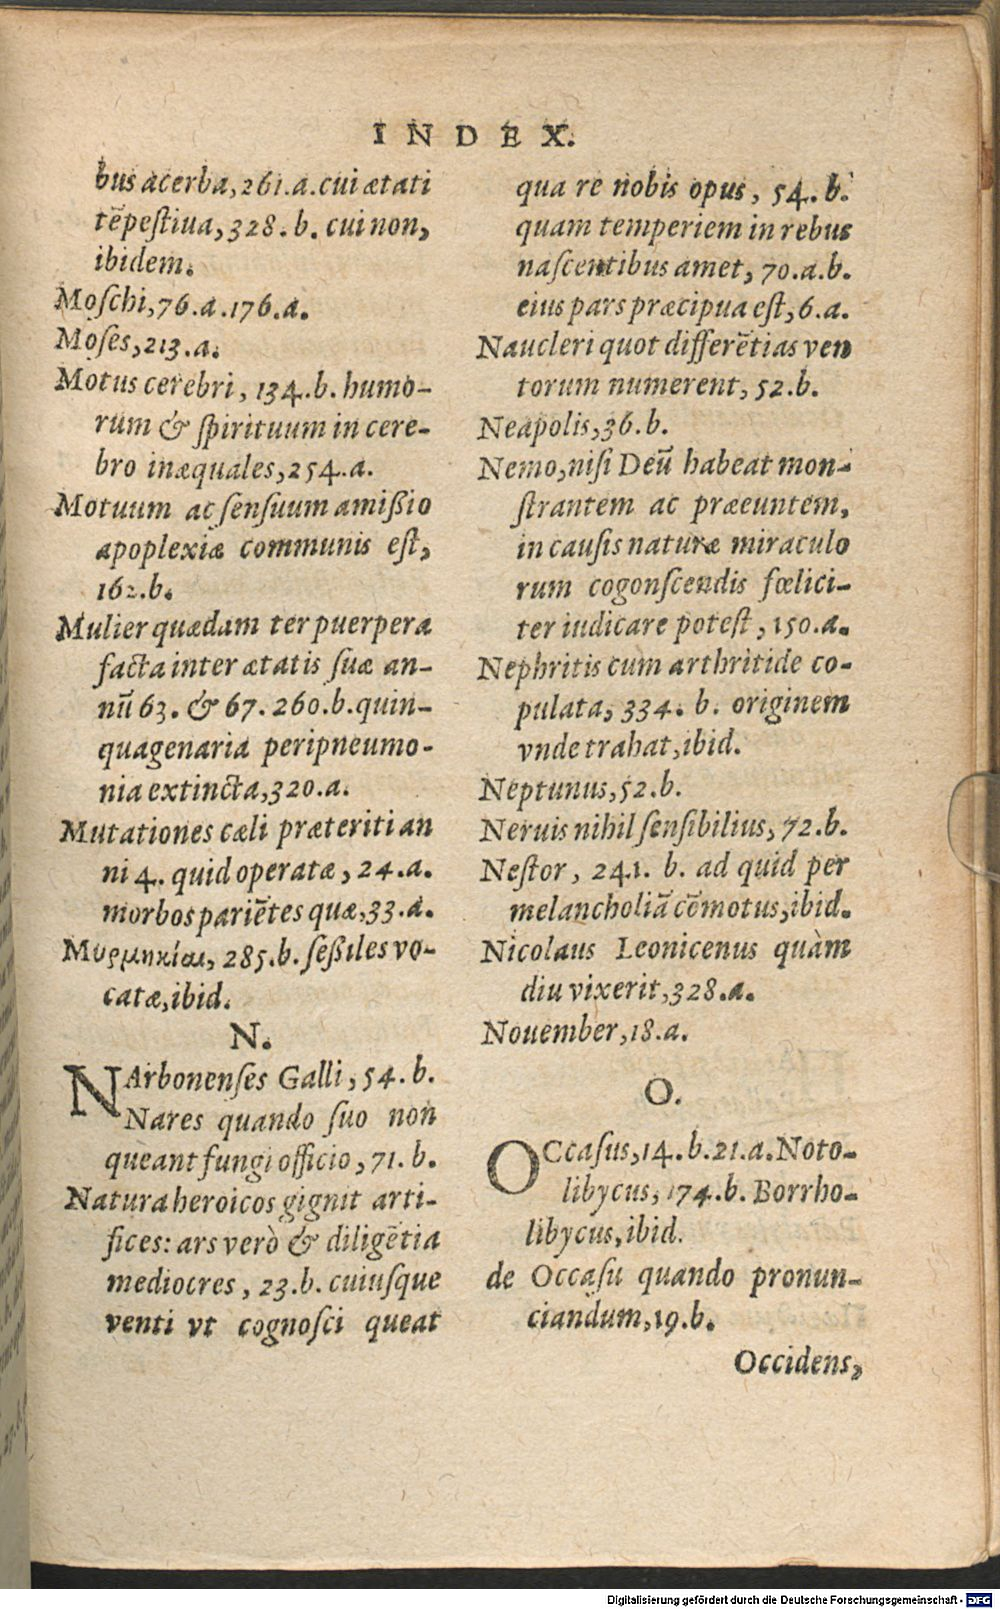 INDEX.
bus acerba, 261.a. cui ætati
tẽpeſtiua, 328. b. cui non,
ibidem.
Moſchi, 76.a.176.a.
Moſes, 213.a.
Motus cerebri, 134.b. humo-
rum & ſpirituum in cere-
bro inæquales, 254.a.
Motuum ac ſenſuum amißio
apoplexiæ communis eſt,
162.b.
Mulier quædam ter puerpera
facta inter ætatis ſuæ an-
nũ 63. & 67. 260.b. quin-
quagenaria peripneumo-
nia extincta, 320.a.
Mutationes cæli præteriti an
ni 4. quid operatæ, 24.a.
morbos pariẽtes quæ, 33.a.
Μυρμηκίαι, 285.b. ſeßiles vo-
catæ, ibid.
N.
NArbonenſes Galli, 54.b.
Nares quando ſuo non
queant fungi officio, 71.b.
Natura heroicos gignit arti-
fices: ars verò & diligẽtia
mediocres, 23.b. cuiuſque
venti vt cognoſci queat
qua re nobis opus, 54.b.
quam temperiem in rebus
naſcentibus amet, 70.a.b.
eius pars præcipua eſt, 6.a.
Naucleri quot differẽtias ven
torum numerent, 52.b.
Neapolis, 36.b.
Nemo, niſi Deũ habeat mon-
ſtrantem ac præeuntem,
in cauſis naturæ miraculo
rum cogonſcendis fœlici-
ter iudicare poteſt, 150.a.
Nephritis cum arthritide co-
pulata, 334. b. originem
vnde trahat, ibid.
Neptunus, 52.b.
Neruis nihil ſenſibilius, 72.b.
Neſtor, 241. b. ad quid per
melancholiã cõmotus, ibid.
Nicolaus Leonicenus quàm
diu vixerit, 328.a.
Nouember, 18.a.
O.
OCcaſus, 14.b.21.a. Noto-
libycus, 174.b. Borrho-
libycus, ibid.
de Occaſu quando pronun-
ciandum, 19.b.
Occidens,
Digitalisierung gefördert durch die Deutsche Forschungsgemeinschaft - DFG